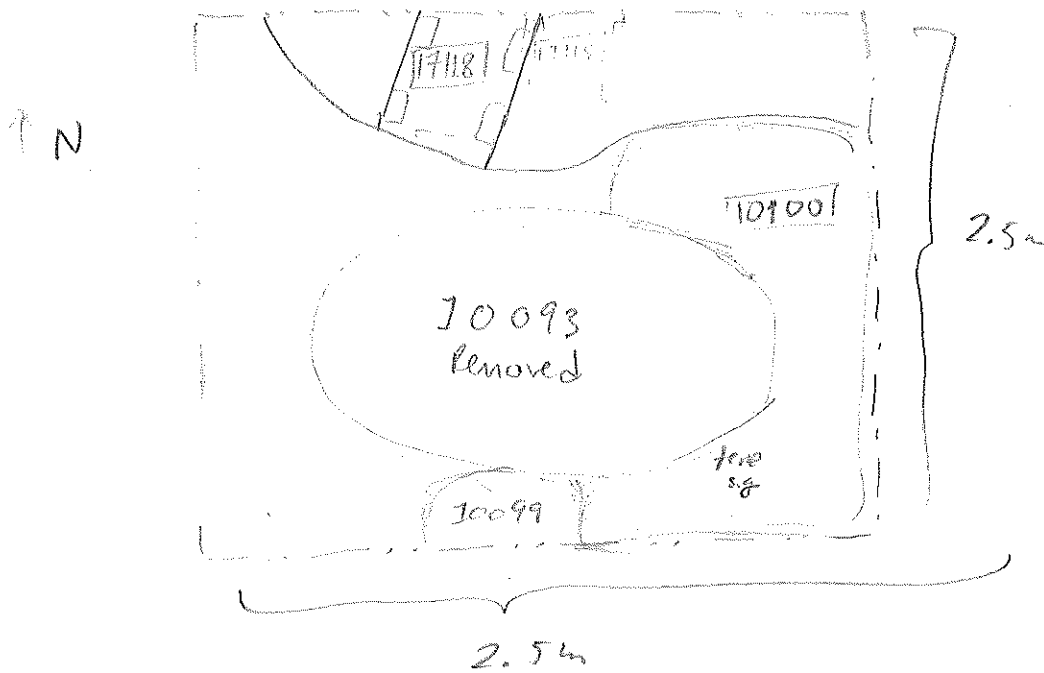 17118
N
10100
2.5m
10093
Removed
10099
2.5m